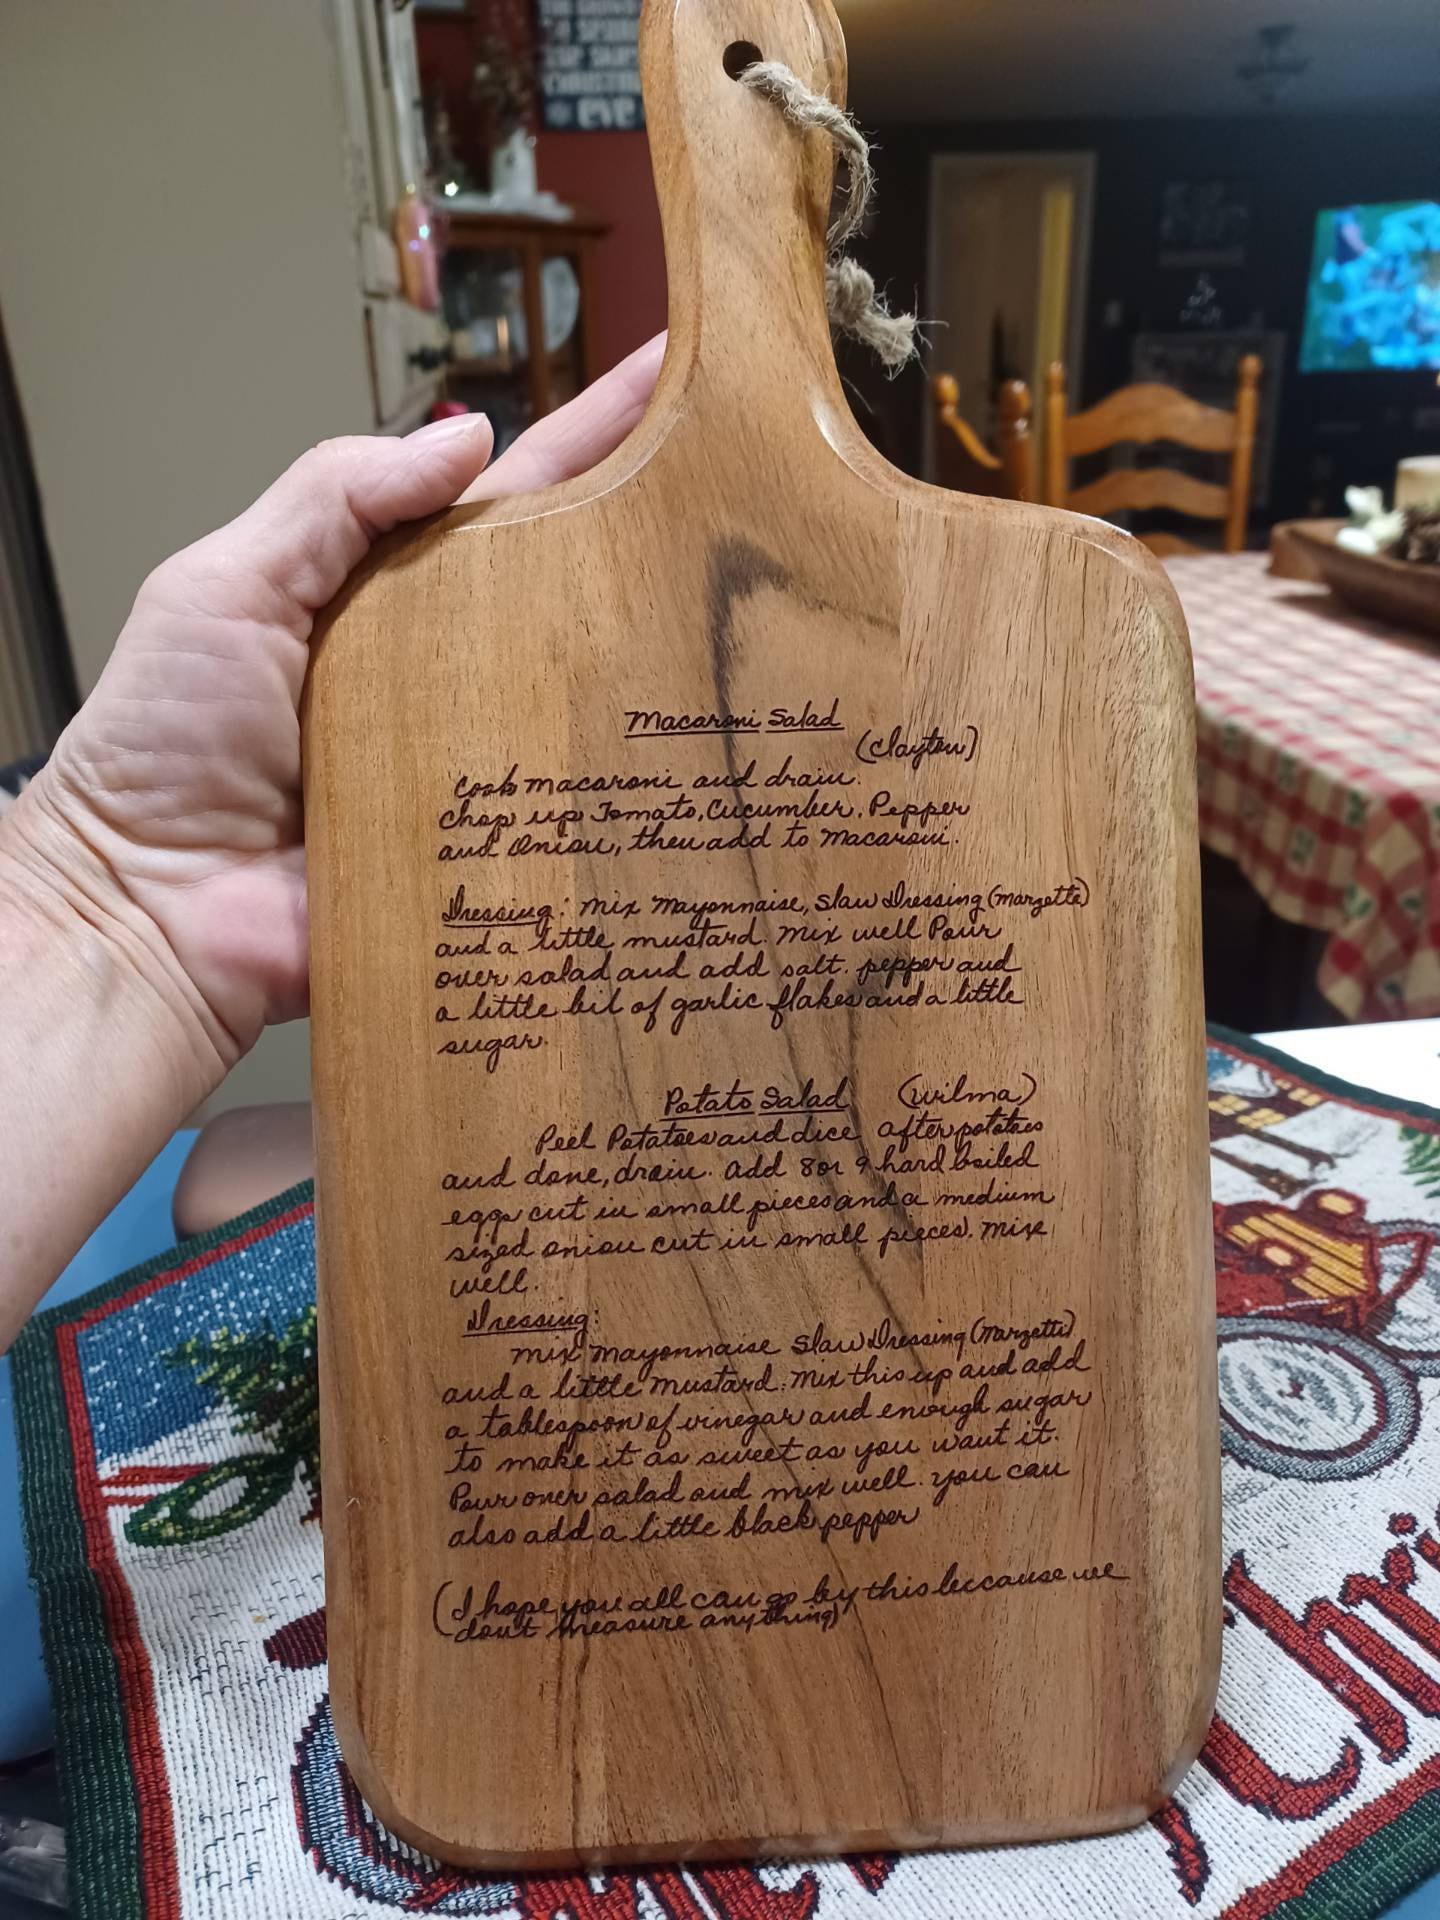 EVE
Macaroni Salad
(Clayton)
Cook macaroni and drain.
Chop up Tomato, Cucumber, Pepper
and Onion, then add to Macaroni.
Dressing: Mix Mayonnaise, Slaw Dressing (Marzette)
and a little mustard. Mix well Pour
over salad and add salt. pepper and
a little bit of garlic flakes and a little
sugar.
Potato Salad (Wilma)
Peel Potatoes and dice after potatoes
and done, drain. Add 8 or 9 hard boiled
eggs cut in small pieces and a medium
sized onion cut in small pieces. Mix
well.
Dressing:
Mix Mayonnaise Slaw Dressing (Marzetti)
and a little Mustard. Mix this up and add
a tablespoon of vinegar and enough sugar
to make it as sweet as you want it.
Pour over salad and mix well. You can
also add a little black pepper
(I hope you all can go by this beccause we
don't measure anything)